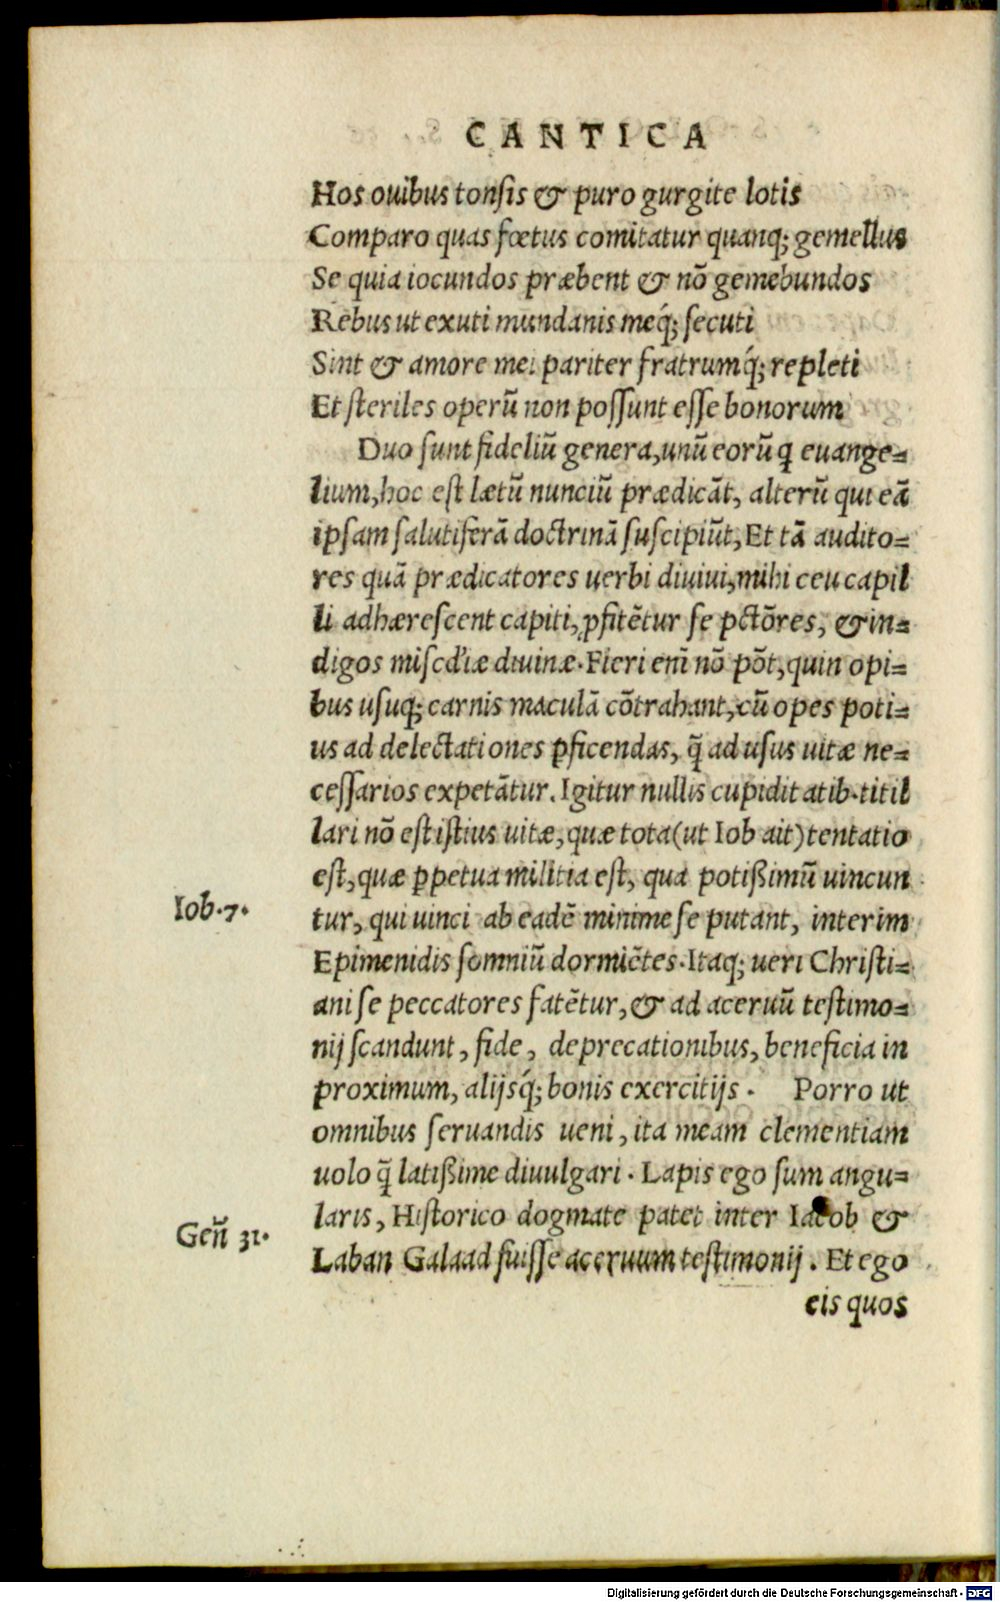 CANTICA
Hos ouibus tonsis & puro gurgite lotis
Comparo quas fœtus comitatur quanq; gemellus
Se quia iocundos præbent & nõ gemebundos
Rebus ut exuti mundanis meq́; secuti
Sint & amore mei pariter fratrumq́; repleti
Et steriles operũ non possunt esse bonorum
Duo sunt fideliũ genera, unũ eorũ ꝗ euange=
lium, hoc est lætũ nunciũ prædicãt, alterũ qui eã
ipsam salutiferã doctrinã suscipiũt, Et tã audito=
res quã prædicatores uerbi diuiui, mihi ceu capil
li adhærescent capiti, ꝓfitẽtur se pctõres, & in=
digos miscd'iæ diuinæ. Fieri enĩ nõ põt, quin opi=
bus usuq; carnis maculã cõtrahant, cũ opes poti=
us ad delectationes ꝑficendas, q̃ ad usus uitæ ne=
cessarios expetãtur. Igitur nullis cupiditatib. titil
lari nõ est istius uitæ, quæ tota (ut Iob ait) tentatio
est, quæ ꝑpetua militia est, qua potißimũ uincun
Iob. 7.
tur, qui uinci ab eadẽ minime se putant, interim
Epimenidis somniũ dormiẽtes. Itaq; ueri Christi=
ani se peccatores fatẽtur, & ad aceruũ testimo=
nij scandunt, fide, deprecationibus, beneficia in
proximum, alijsq́; bonis exercitijs. Porro ut
omnibus seruandis ueni, ita meam clementiam
uolo q̃ latißime diuulgari. Lapis ego sum angu=
laris, Historico dogmate patet inter Iacob &
Geñ 31.
Laban Galaad fuisse aceruum testimonij. Et ego
eis quos
Digitalisierung gefördert durch die Deutsche Forschungsgemeinschaft - DFG